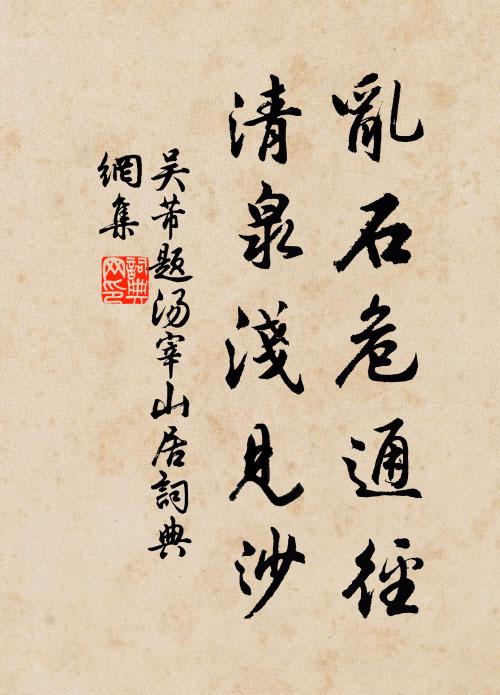 亂石危通徑
清泉淺見沙
吴芾题汤宰山居詞典
網集
詞典
网印